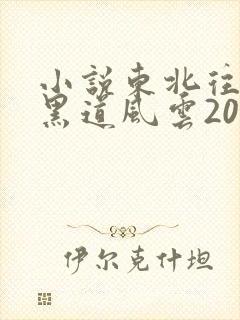 小說東北往
黑道風雲20
伊尔克什坦